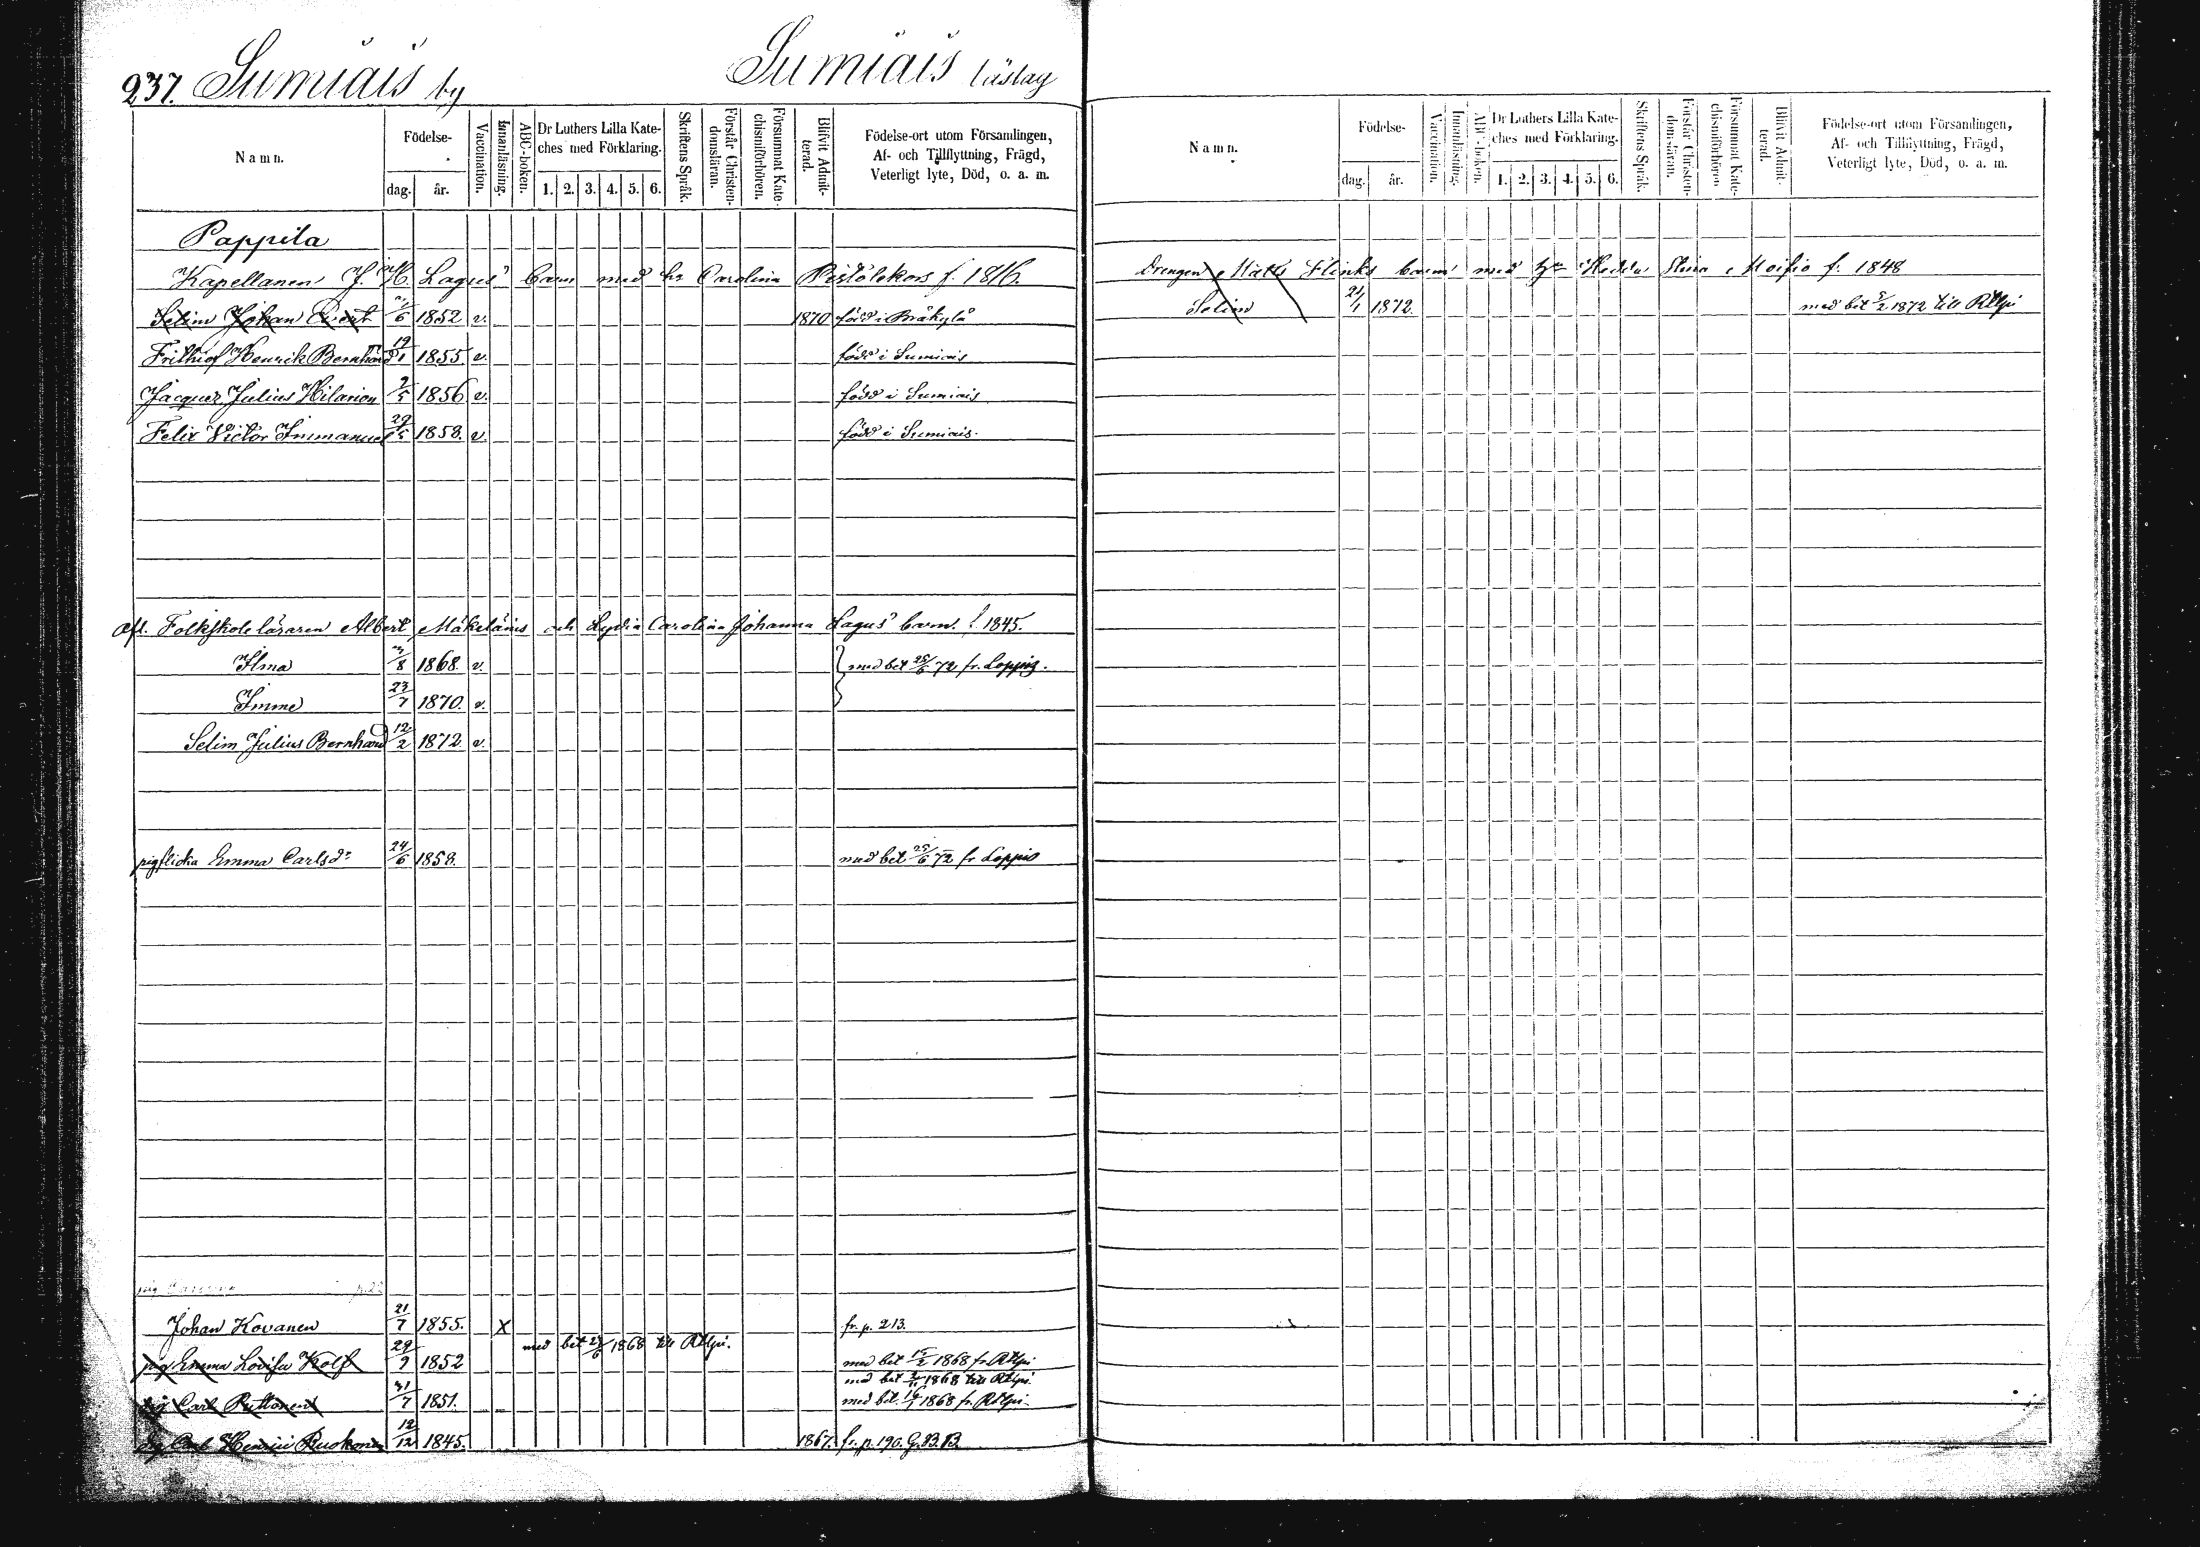 237. Sumiais by
Sumiais läslag
Namn.
Födelse-
dag. år.
Vaccination.
Innanläsning.
ABC-boken.
Dr Luthers Lilla Kate-
ches med Förklaring.
1. 2. 3. 4. 5. 6.
Skriftens Språk.
Förstår Christen-
domsläran.
Försummat Kate-
chismiförhören.
Blifvit Admit-
terad.
Födelse-ort utom Församlingen,
Af- och Tillflyttning, Frägd,
Veterligt lyte, Död, o. a. m.
Pappila
Kapellanen J. H. Lagus' barn med h. Carolina f. 1816.
Selim Johan 6 1852 v. 1870 född i Bräkylä
Frithiof Henrick Bernhard 19/1 1855 v. född i Sumiais
Jacques Julius Hilarion 2/5 1856 v. född i Sumiais
Felix Victor Immanuel 29/5 1858. v. född i Sumiais.
Afl. Folkskoleläraren Albert Mäkeläinis och Lydia Carolina Johanna Lagus' barn. f. 1845.
Ilma 8 1868. v. med bet 25/6 72 fr. Loppis.
Imme 23/7 1870. v.
Selim Julius Bernhard 12/2 1872. v.
pigflicka Emma Carlsdr 24/6 1858. med bet 25/6 72 fr Loppis
Johan Kovanen 21/7 1855. X fr. p. 213.
med bet 1868 till RLpi.
pig Emma Lovisa Kolf 29/9 1852 med bet 15/2 1868 fr. RLpi
med bet 1868 till RLpi.
Carl Puttonen 31/7 1851. med bet. 1868 fr. RLpi.
drg Carl Henrik Ruokonen 12/12 1845. 1867. fr. p. 190. G.B.B.
Namn.
Födelse-
dag. år.
Vaccination.
Innanläsning.
ABC-boken.
Dr Luthers Lilla Kate-
ches med Förklaring.
1. 2. 3. 4. 5. 6.
Skriftens Språk.
Förstår Christen-
domsläran.
Försummat Kate-
chismiförhören.
Blifvit Admit-
terad.
Födelse-ort utom Församlingen,
Af- och Tillflyttning, Frägd,
Veterligt lyte, Död, o. a. m.
Drengen Matts Flinks barn med Hedda Stina Moisio f. 1848
Selim 21/1 1872. med bet 5/2 1872 till RLpi